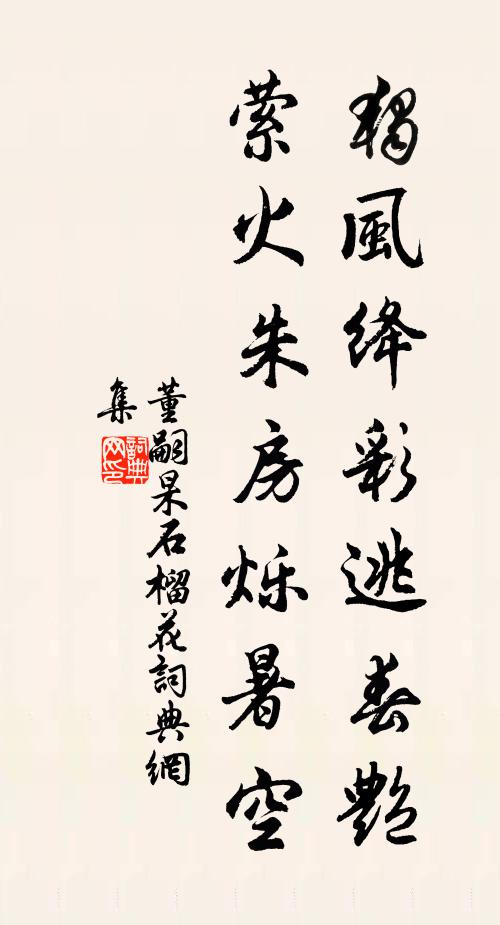 猲風绛彩逃春艷
萦火朱房烁暑空
董嗣杲石榴花詞典網
集
詞典
网印